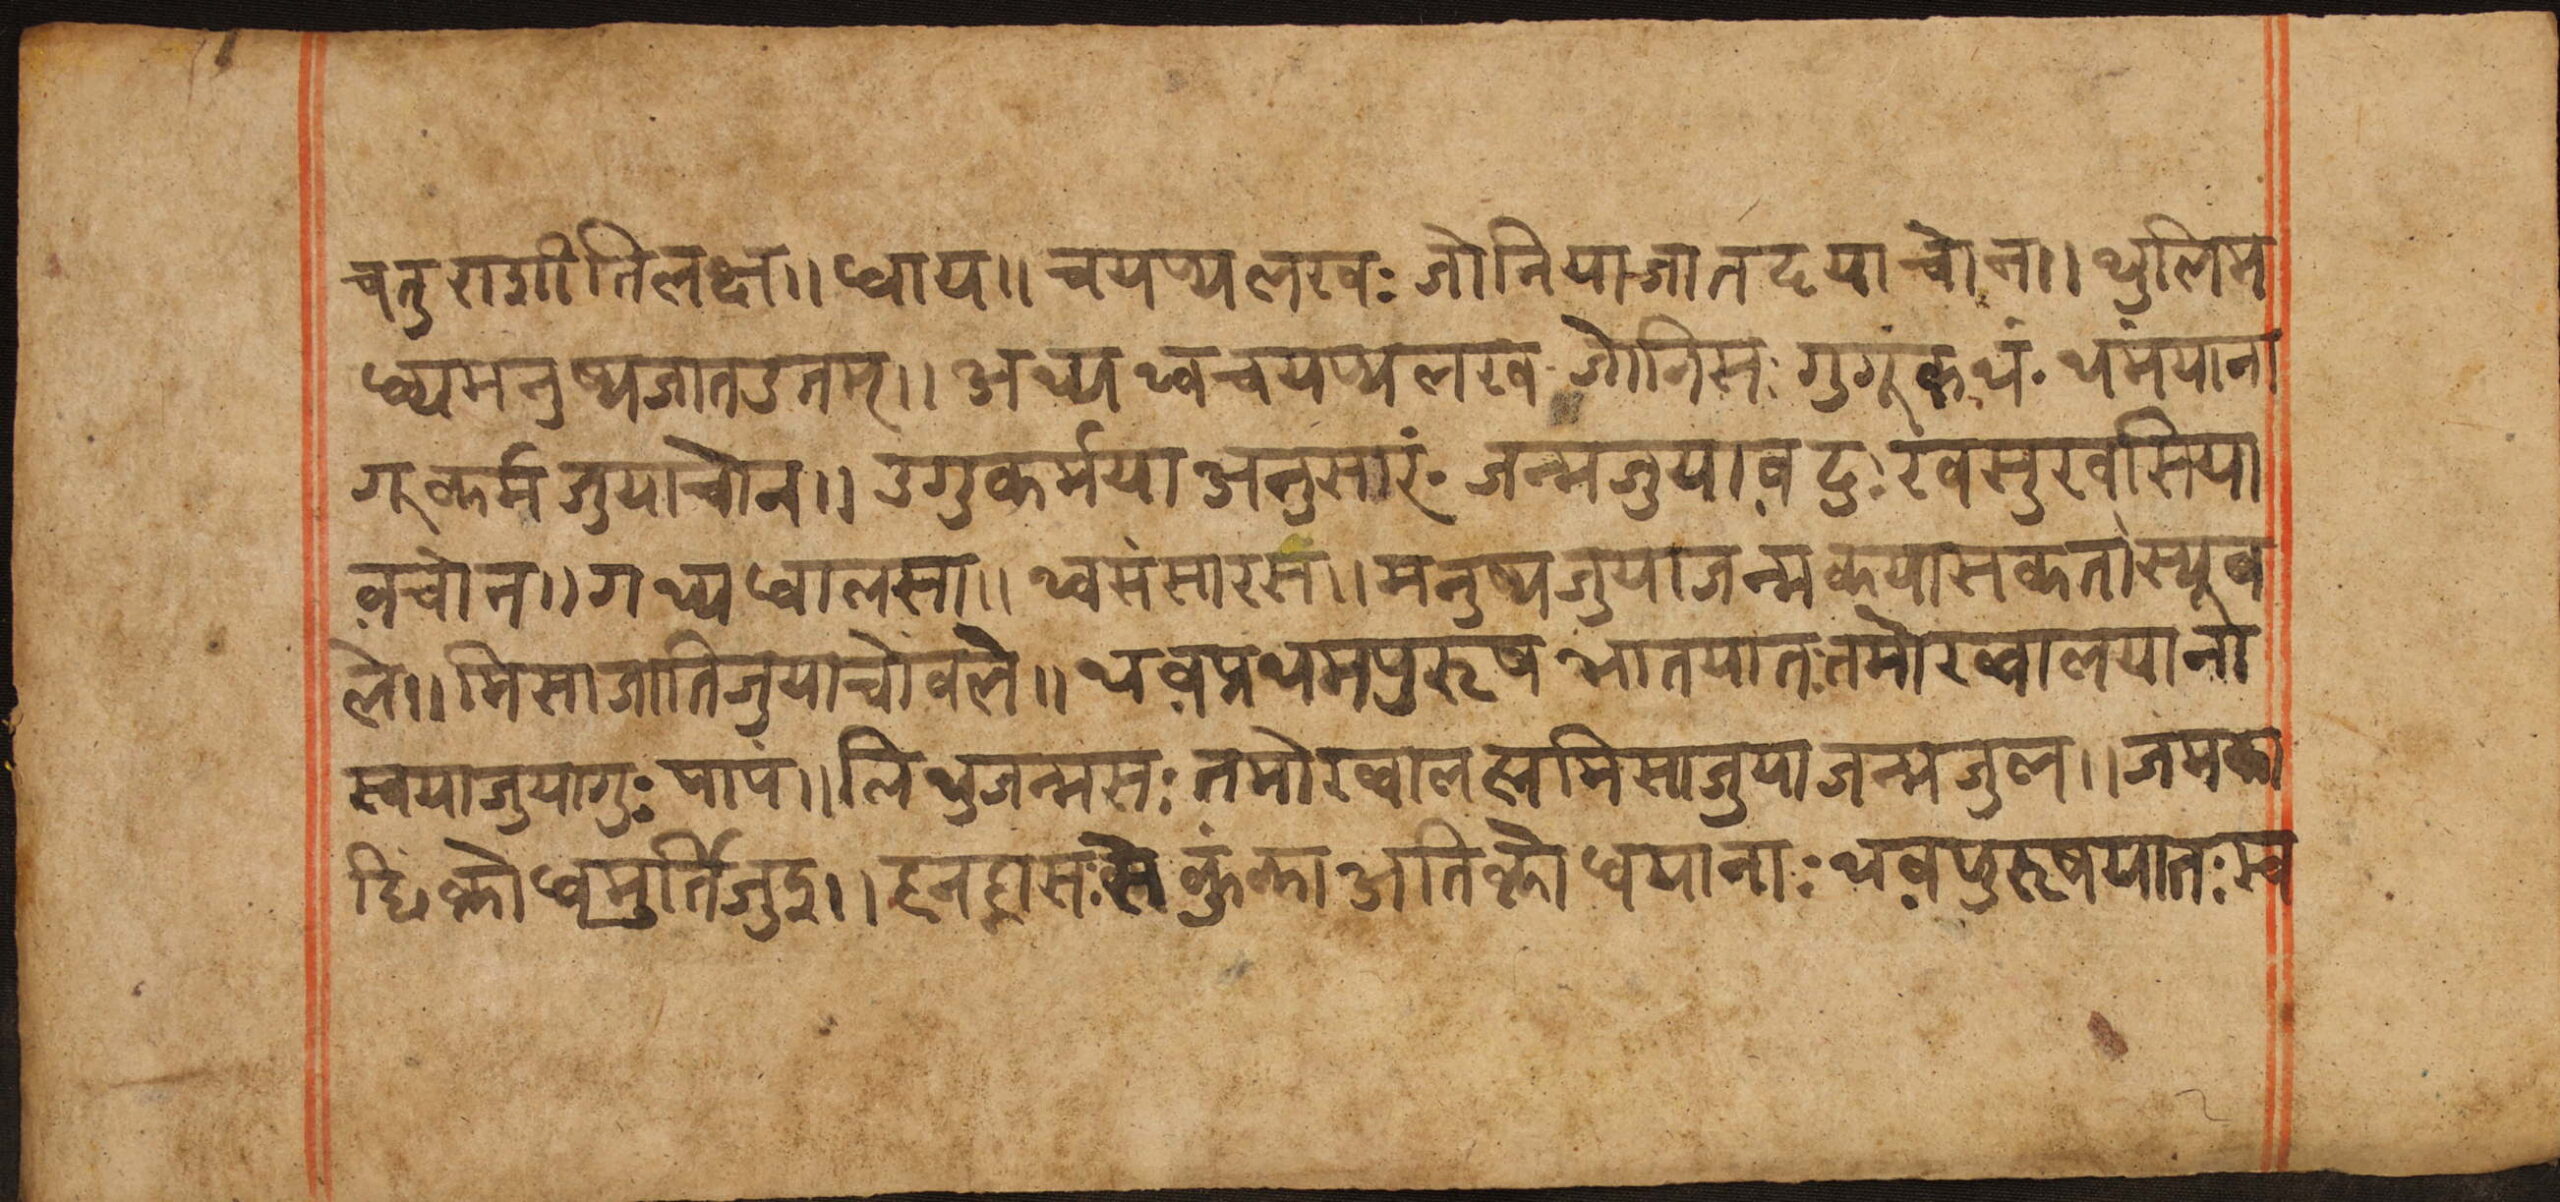 चतुराशीतिलक्ष॥ धाय॥ चयप्यलखः जोनियाजातदयाचोन॥ थुलिम
ध्यमनुष्यजातउतम्॥ अथ्य थ्वचयप्यलख जोनिसः गुगूंकथं. थमंयाना
गू कर्म जुयाचोन॥ उगुकर्मया अनुसारं. जन्मजुयाव़दुःखसुखसिया
व़चोन॥ गथ्य धालसा॥ थ्वसंसारसं॥ मनुष्यजुयाजन्मकयासकतांस्यूव
ले॥ मिसाजातिजुयाचोंवले॥ थव़प्रथमपुरूष भातयातःतमोख्वालयानां
स्वयाजुयागुः पापं॥ लिथुजन्मसः तमोख्वालह्ममिसाजुयाजन्मजुल॥ जमका
हि क्रोधमुर्तिजुइ॥ हनहासः सेकुंका अतिक्रोधयानाः थव़पुरूषयातः स्व